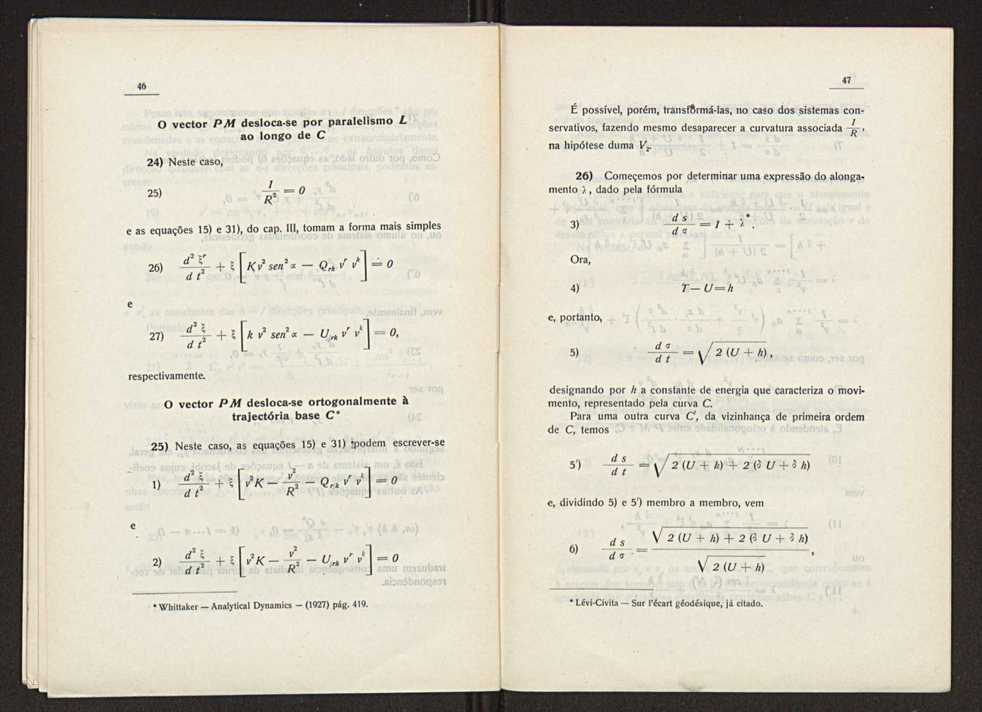 46
O vector PM desloca-se por paralelismo L
ao longo de C
24) Neste caso,
25) 1/R² = 0
e as equações 15) e 31), do cap. III, tomam a forma mais simples
26) d² ξʳ / d t² + ξ [ K v² sen² α — Q_rk vʳ vᵏ ] = 0
e
27) d² ξ / d t² + ξ [ k v² sen² α — U_/rk vʳ vᵏ ] = 0,
respectivamente.
O vector PM desloca-se ortogonalmente à
trajectória base C*
25) Neste caso, as equações 15) e 31) podem escrever-se
1) d² ξ / d t² + ξ [ v² K — v²/R² — Q_r/k vʳ vᵏ ] = 0
e
2) d² ξ / d t² + ξ [ v² K — v²/R² — U_/rk vʳ vᵏ ] = 0
* Whittaker — Analytical Dynamics — (1927) pág. 419.
47
É possível, porém, transformá-las, no caso dos sistemas con-
servativos, fazendo mesmo desaparecer a curvatura associada 1/R,
na hipótese duma V₂.
26) Começemos por determinar uma expressão do alonga-
mento λ, dado pela fórmula
3) d s / d σ = 1 + λ* .
Ora,
4) T — U = h
e, portanto,
5) d σ / d t = √ 2 (U + h),
designando por h a constante de energia que caracteriza o movi-
mento, representado pela curva C.
Para uma outra curva C', da vizinhança de primeira ordem
de C, temos
5') d s / d t = √ 2 (U + h) + 2 (δ U + δ h)
e, dividindo 5) e 5') membro a membro, vem
6) d s / d σ = √ 2 (U + h) + 2 (δ U + δ h) / √ 2 (U + h) ,
* Lévi-Civita — Sur l'écart géodésique, já citado.